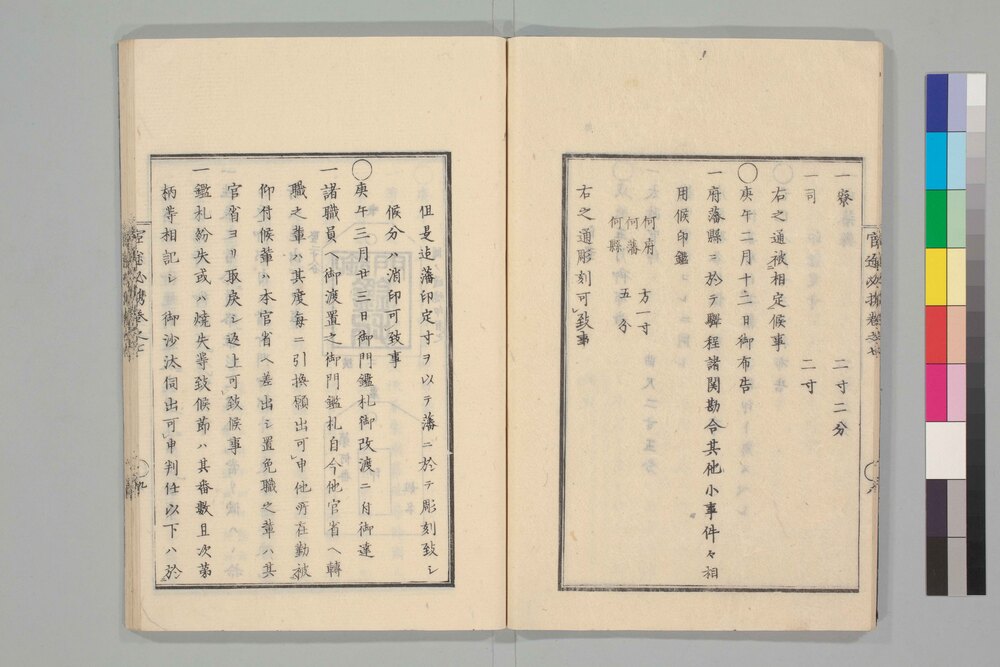 一寮　二寸二分
一司　二寸
右之通被相定候事
〇庚午二月十三日御布告
一府藩縣ニ於テ驛程諸関勘合其他小事件々相
用候印鑑
何府
何藩　方一寸五分
何縣
右之通彫刻可致事
但是迄藩印定寸ヲ以テ藩ニ於テ彫刻致シ
候分ハ消印可致事
〇庚午三月廿三日御門鑑札御改渡ニ付御達
一諸職員ヘ御渡置之御門鑑札自今他官省ヘ轉
職之輩ハ其度毎ニ引換願出可申他所在勤被
仰付候輩ハ本官省ヘ差出シ置免職之輩ハ其
官省ヨリ取戻シ返上可致候事
一鑑札紛失或ハ焼失等致候節ハ其番數且次第
柄等相記シ御沙汰伺出可申判任以下ハ於